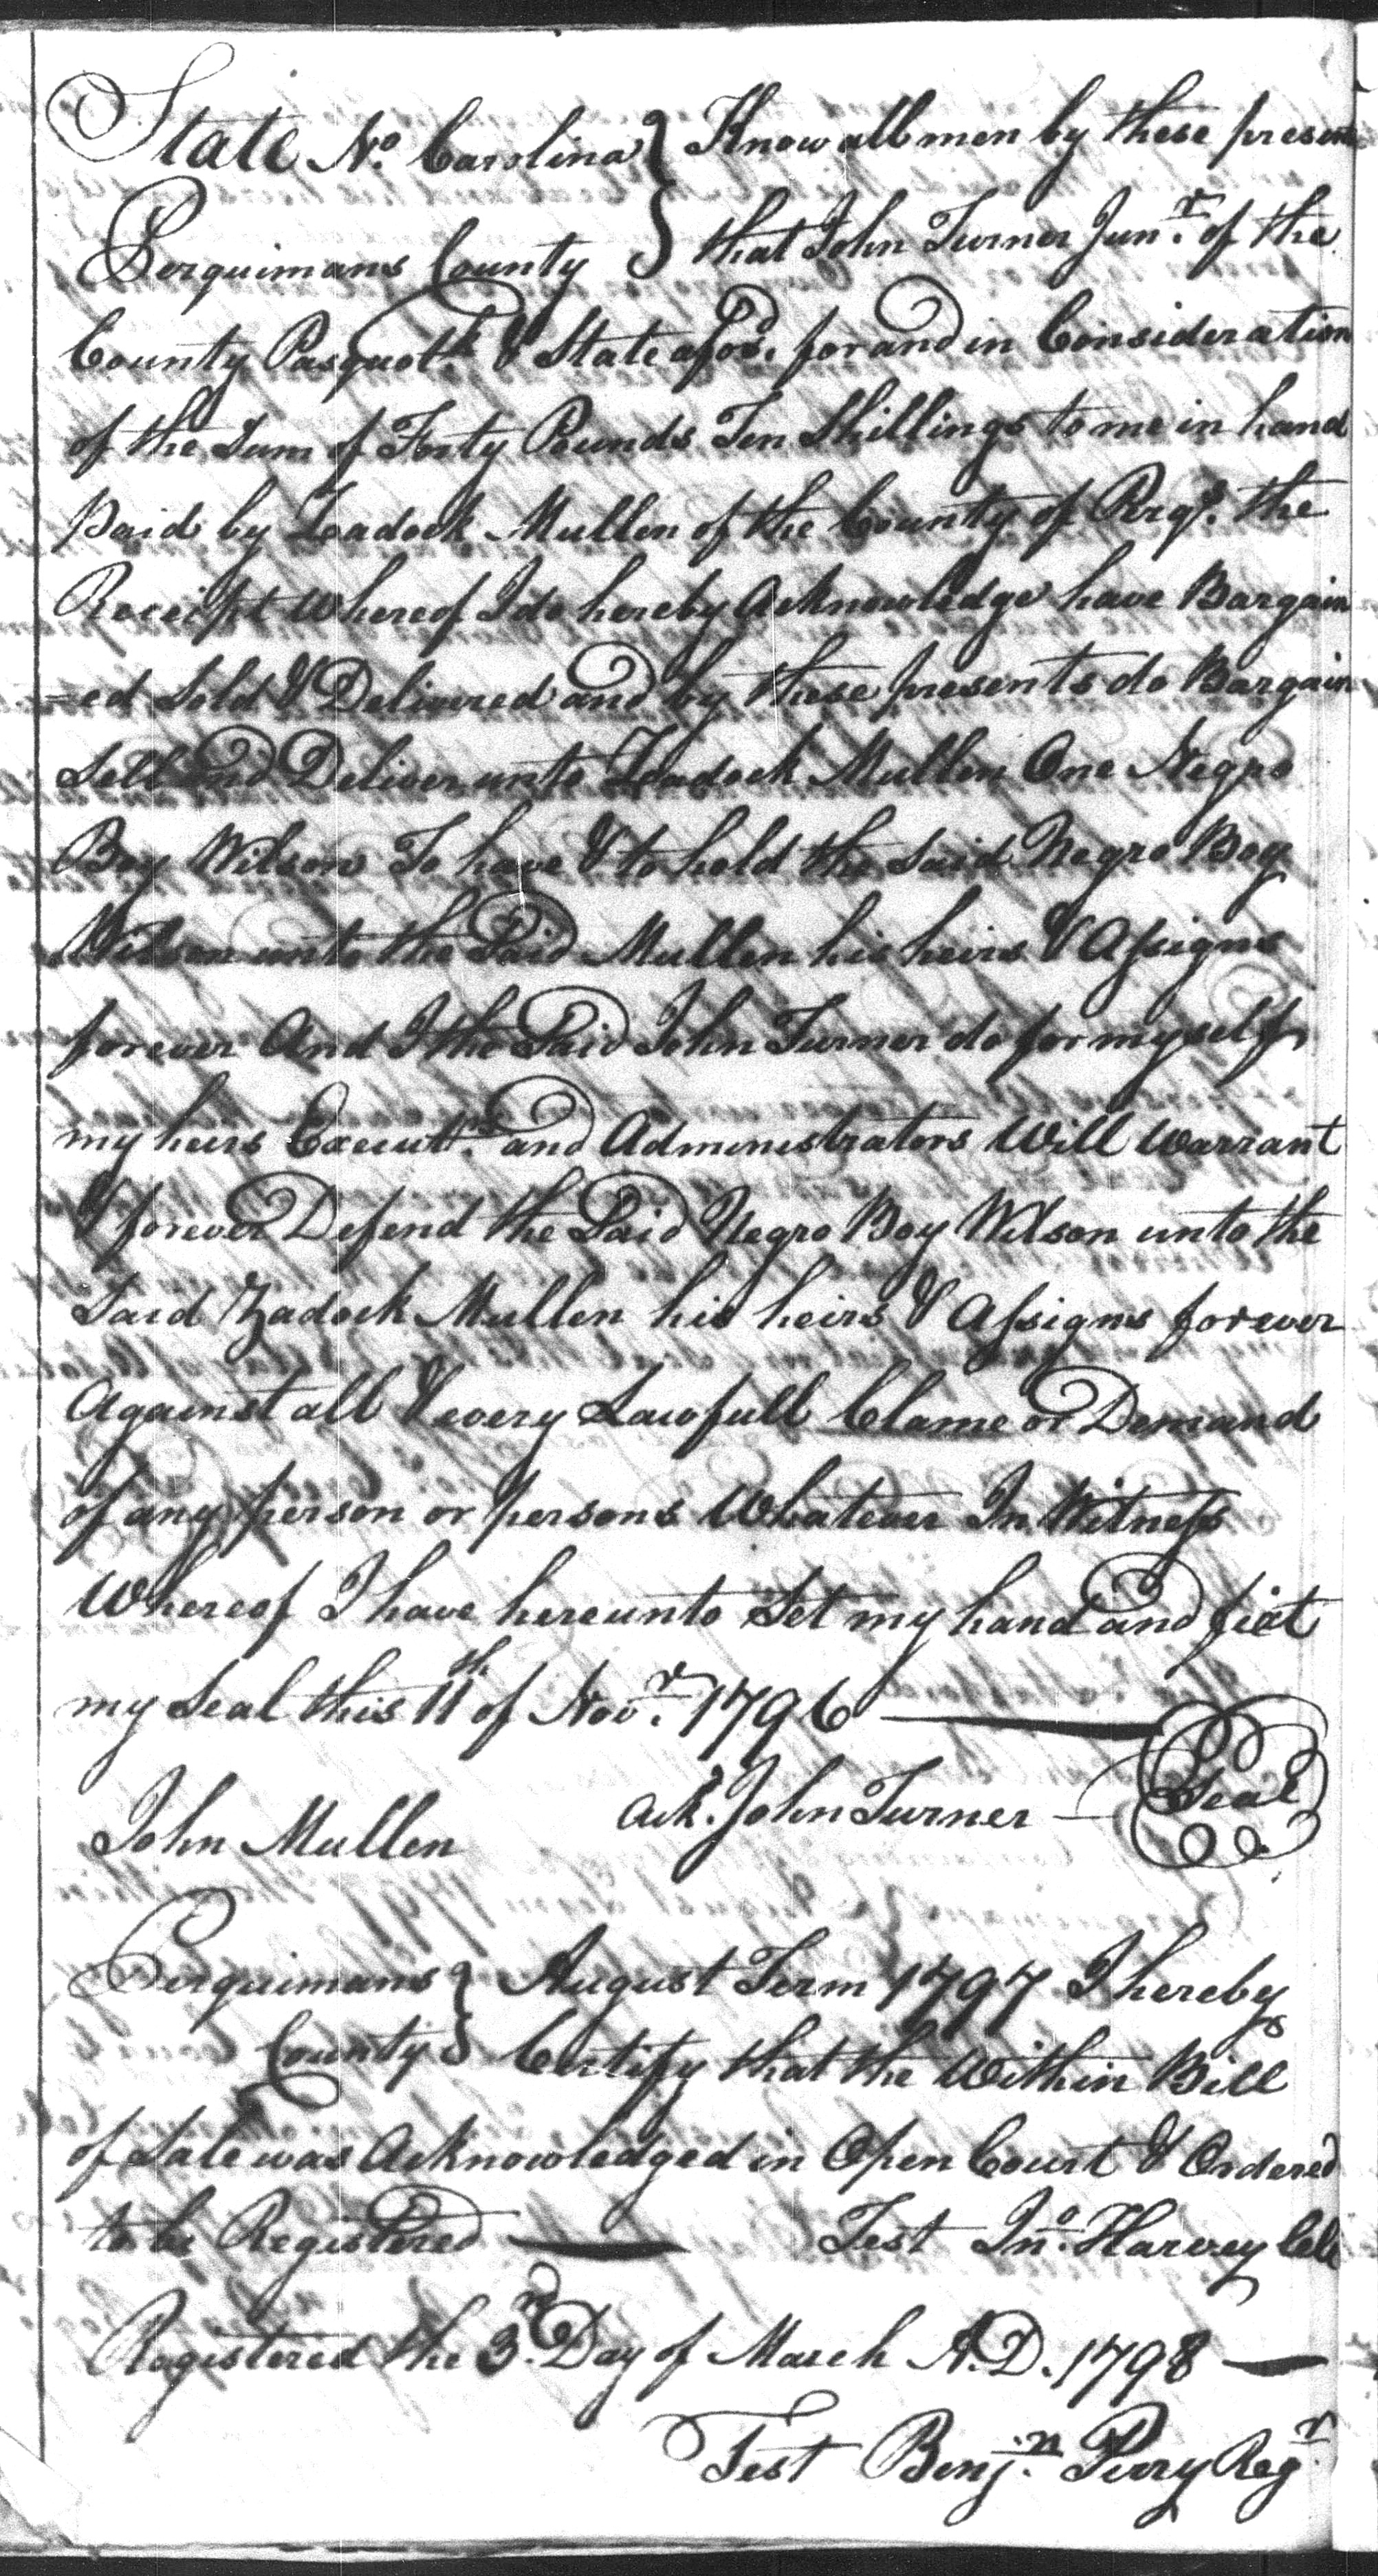 State No. Carolina } Know all men by these presen
Perquimans County } that John Turner Junr. of the
County Pasquotk. & State aford. for and in Consideration
of the Sum of Forty Pounds Ten Shillings to me in hand
paid by Zadock Mullen of the County of Perqs. the
Receipt whereof I do hereby Acknowledge have Bargain
=ed Sold & Delivered and by these presents do Bargain
Sell and Deliver unto Zadock Mullen One Negro
Boy Wilson To have & to hold the said Negro Boy
Wilson unto the Said Mullen his heirs & Assigns
forever And I the Said John Turner do for myself
my heirs Executrs. and Administrators Will Warrant
& forever Defend the Said Negro Boy Wilson unto the
Said Zadock Mullen his heirs & Assigns forever
Against all & every Lawfull Clame or Demand
of any person or persons Whatever In Witness
Whereof I have hereunto Set my hand and fixt
my Seal this 11th. of Novr. 1796
Ackd. John Turner Seal
John Mullen
Perquimans } August Term 1797 I hereby
County } Certify that the Within Bill
of Sale was Acknowledged in Open Court & Ordered
to be Registered Test Jno. Harvey Clk
Registered the 3rd. Day of March A.D. 1798
Test Benjn. Perry Regr.